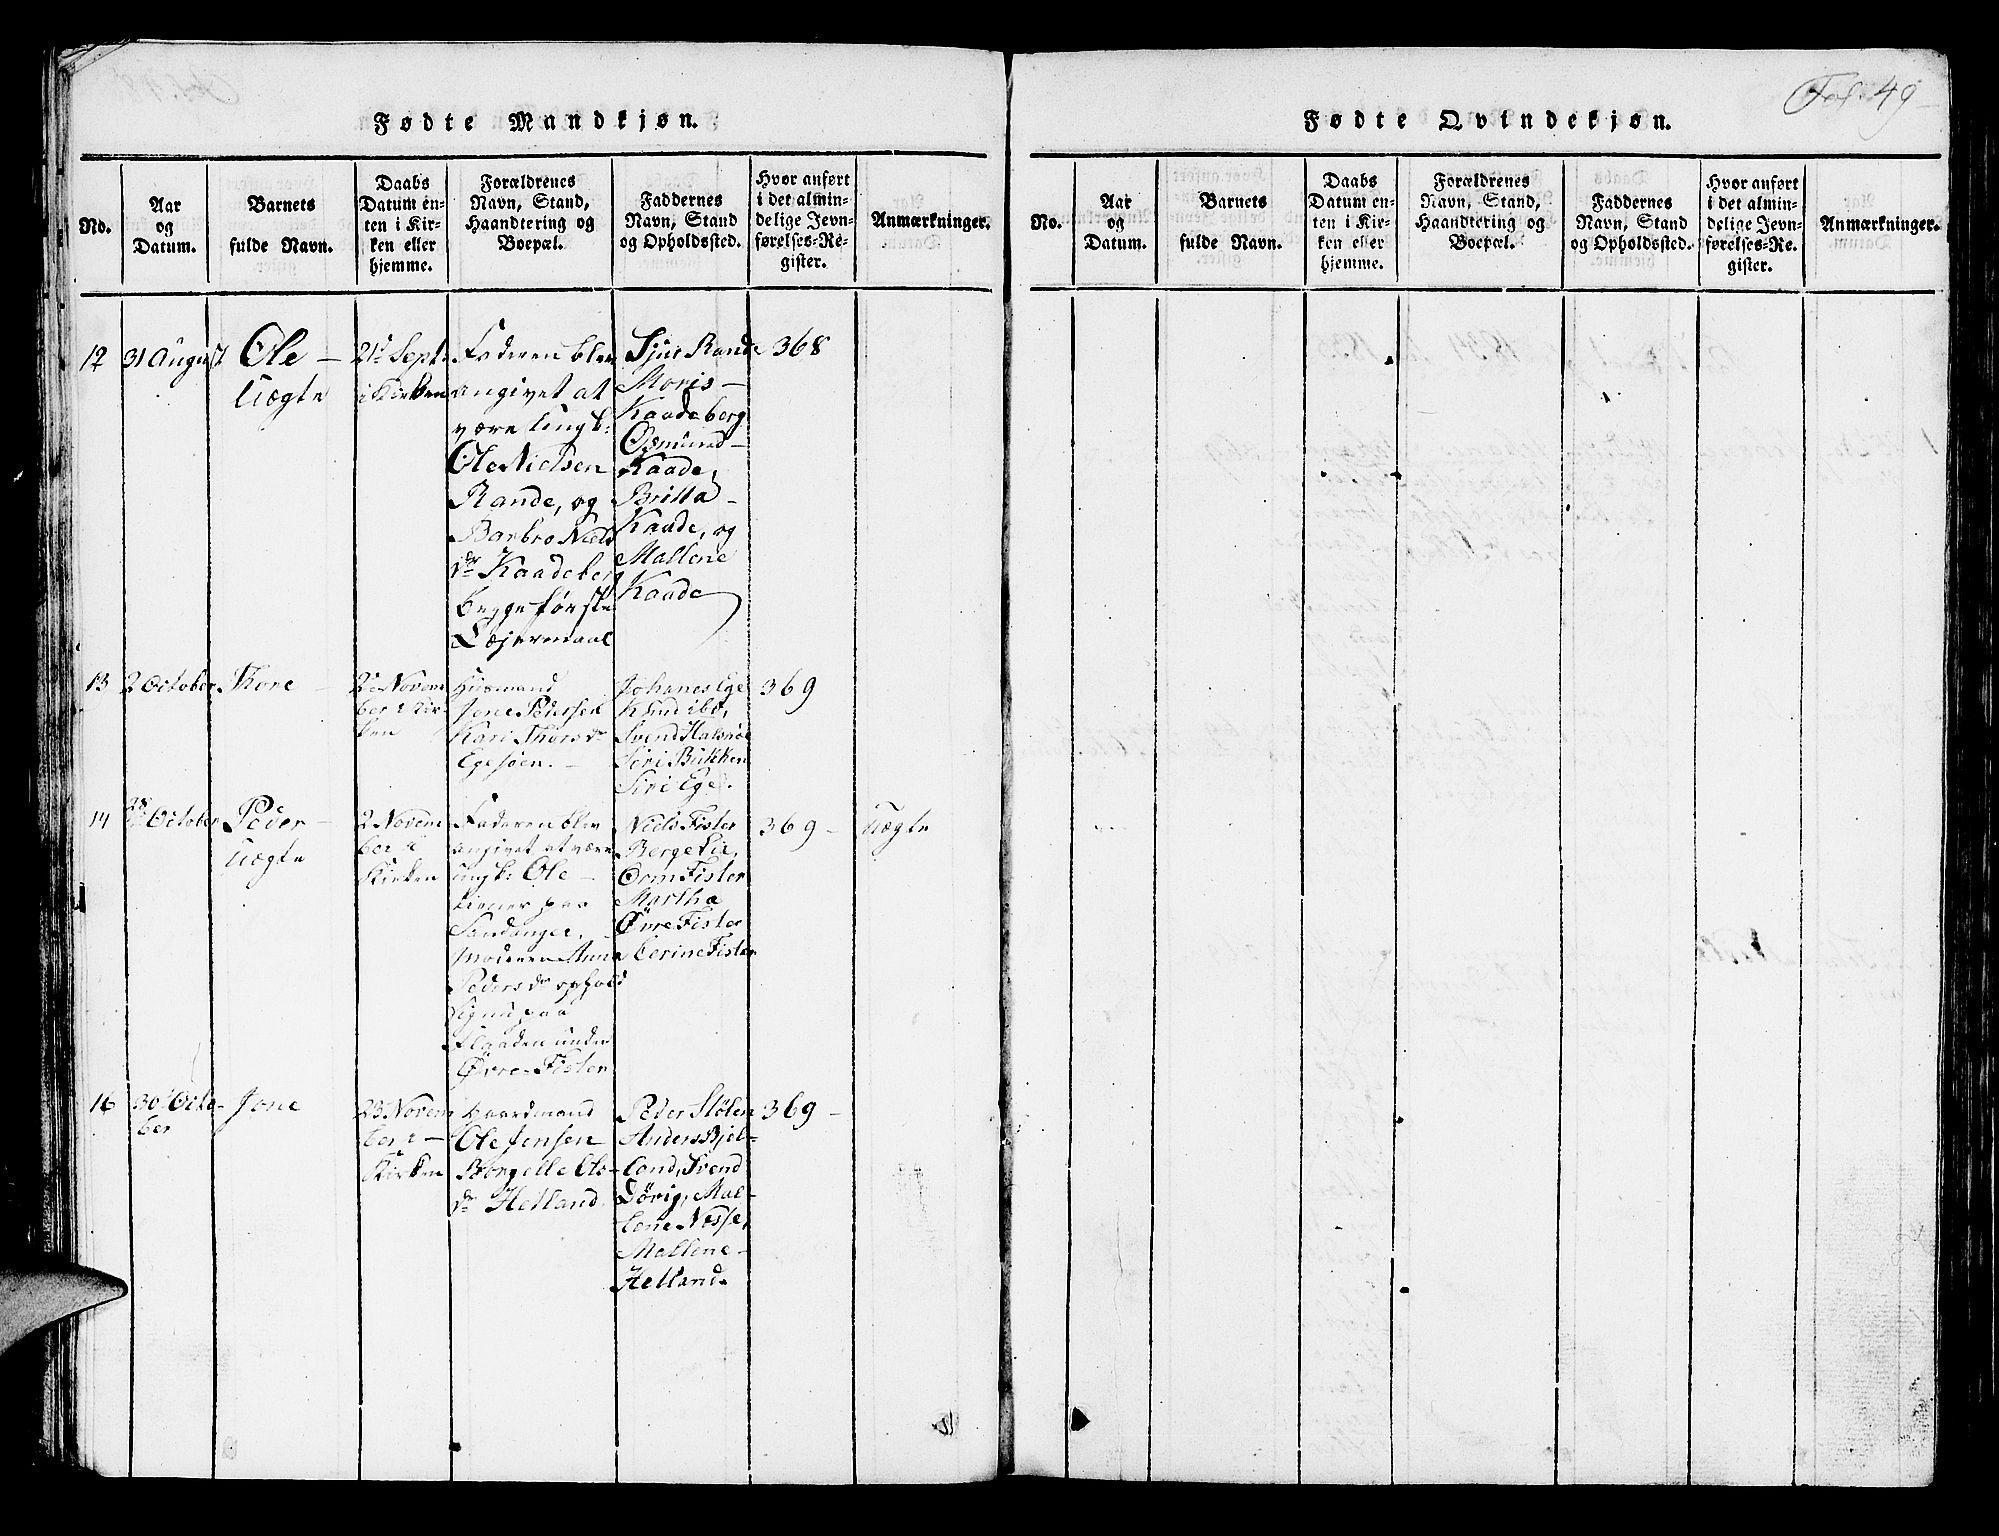 Fol. 49
Fødte Mandkjøn.
No.
Aar
og
Datum.
Barnets
fulde Navn.
Daabs
Datum en-
ten i Kir-
ken eller
hjemme.
Forældrenes
Navn, Stand,
Haandtering og
Boepæl.
Faddernes
Navn, Stand
og Opholdssted.
Hvor anført
i det almin-
delige Jevn-
førelses-Re-
gister.
Anmærkninger.
12
31 August
Ole —
Uægte
21de Sept.
i Kirken
Faderen blev
angivet at
være Ungk:
Ole Nielsen
Rande, og
Barbro Niels
dr Kaadeberg
begge første
Lejermaal
Sjur Rande
Moris —
Kaadeberg
Osmund —
Kaade,
Britta —
Kaade, og
Mallene
Kaade
368
13
2 October
Thore —
2de Novem
ber i Kir-
ken
Huusmand
Jone Pedersen
Kari Thorsdr
Egesøen. —
Johanes Ege
Knud ibd,
Svend Halsnøe
Siri Bukken
Siri Ege.
369
14
28 October
Peder —
Uægte
2 Novem
ber i
Kirken
Faderen blev
angivet at være
Ungk: Ole —
tiener paa
Sandanger.
Moderen Anna
Pedersdr ophold
sig nu paa
Flaaden under
Øvre-Fister
Niels Fister
Berge Lie,
Orm Fister
Martha
Øvre Fister
Cerine Fister
369 —
Uægte
16
30 Octo-
ber
Jone
23 Novem
ber i —
Kirken
Gaardmand
Ole Jensen
Borgelle Ols-
dr Helland.
Peder Stølen
Anders Bjel-
land, Svend
Lørig, Mal-
lene Nesse,
Mallene —
Helland.
369 —
Fødte Qvindekjøn.
No.
Aar
og
Datum.
Barnets
fulde Navn.
Daabs
Datum en-
ten i Kir-
ken eller
hjemme.
Forældrenes
Navn, Stand,
Haandtering og
Boepæl.
Faddernes
Navn, Stand
og Opholdssted.
Hvor anført
i det almin-
delige Jevn-
førelses-Re-
gister.
Anmærkninger.